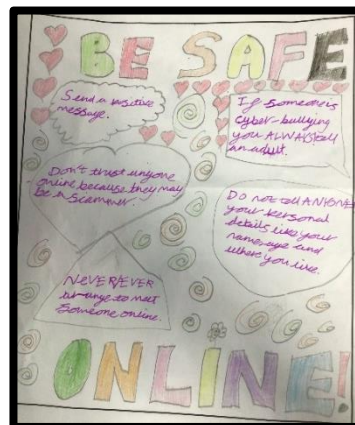 BE SAFE
Send a positive
message.
If someone is
cyber-bullying
you ALWAYS tell
an adult.
Don't trust anyone
online because they may
be a scammer.
DO not tell ANYONE
your personal
details like your
name, age and
where you live.
NEVER EVER
arrange to meet
someone online.
ONLINE!